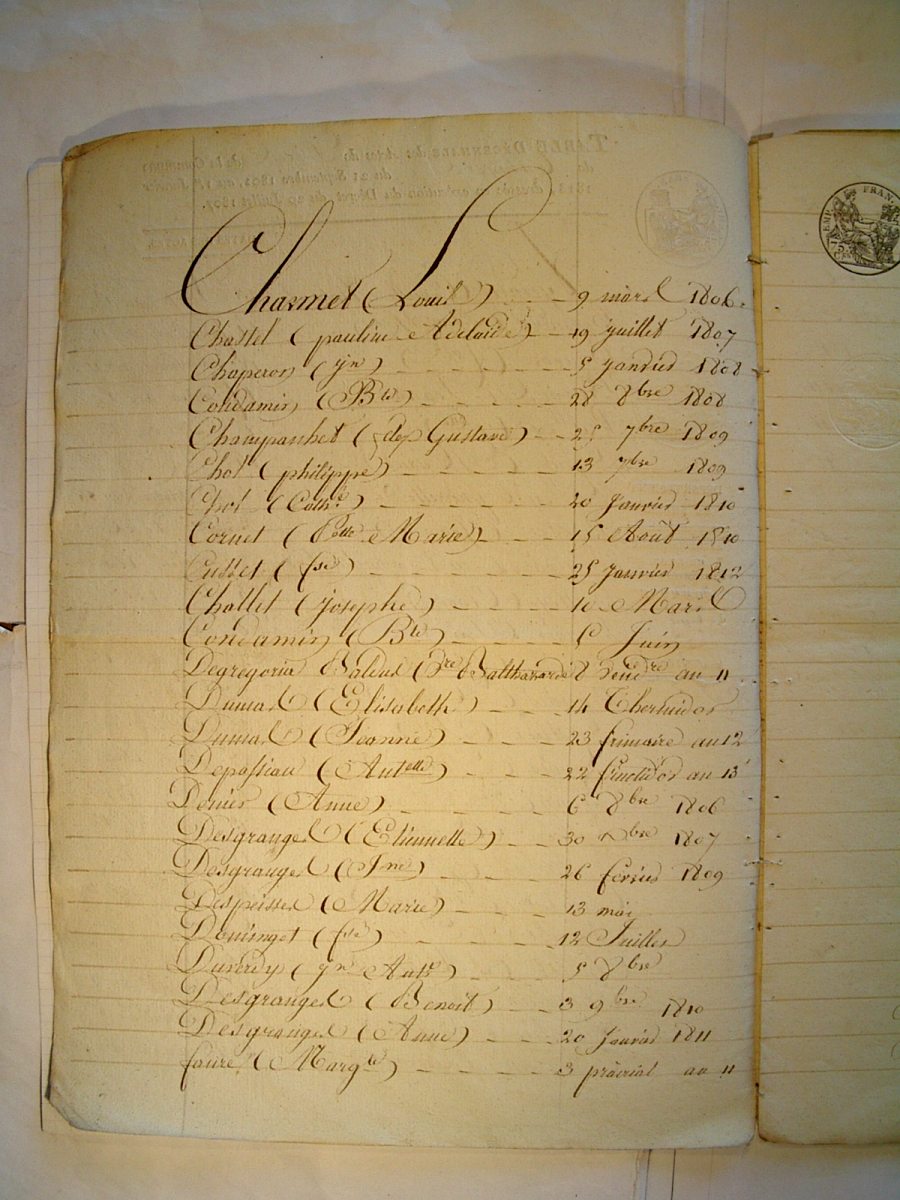 Charmet (Louis) 9 mars 1806
Chastel (pauline Adelaide) 19 juillet 1807
Chaperon (jn) 5 janvier 1808
Condamin (Bte) 28 8bre 1808
Champanhet (Gustave) 25 7bre 1809
Chol (philippe) 13 7bre 1809
Chol (Cathe) 20 Janvier 1810
Cornet (Marie) 15 Août 1810
Cusset (fse) 25 Janvier 1812
Chollet (josephe) 10 Mars
Condamin (Bte) 5 Juin
Degregoria (Balthazard) 8 vendre an 11
Dumas (Elisabeth) 14 Thermidor
Dumas (Jeanne) 23 frimaire an 12
Depassiau (Antette) 22 fructidor an 13
Denier (Anne) 6 8bre 1806
Desgranges (Etiennette) 30 bre 1807
Desgranges (Jne) 26 fevrier 1809
Despeisses (Marie) 13 mai
(fse) 12 Juillet
Duverdy (jn Ante) 5 8bre
Desgranges (Benoit) 3 9bre 1810
Desgranges (Anne) 20 Janvier 1811
faure (Margte) 3 prairial an 11
EMP. FRAN.